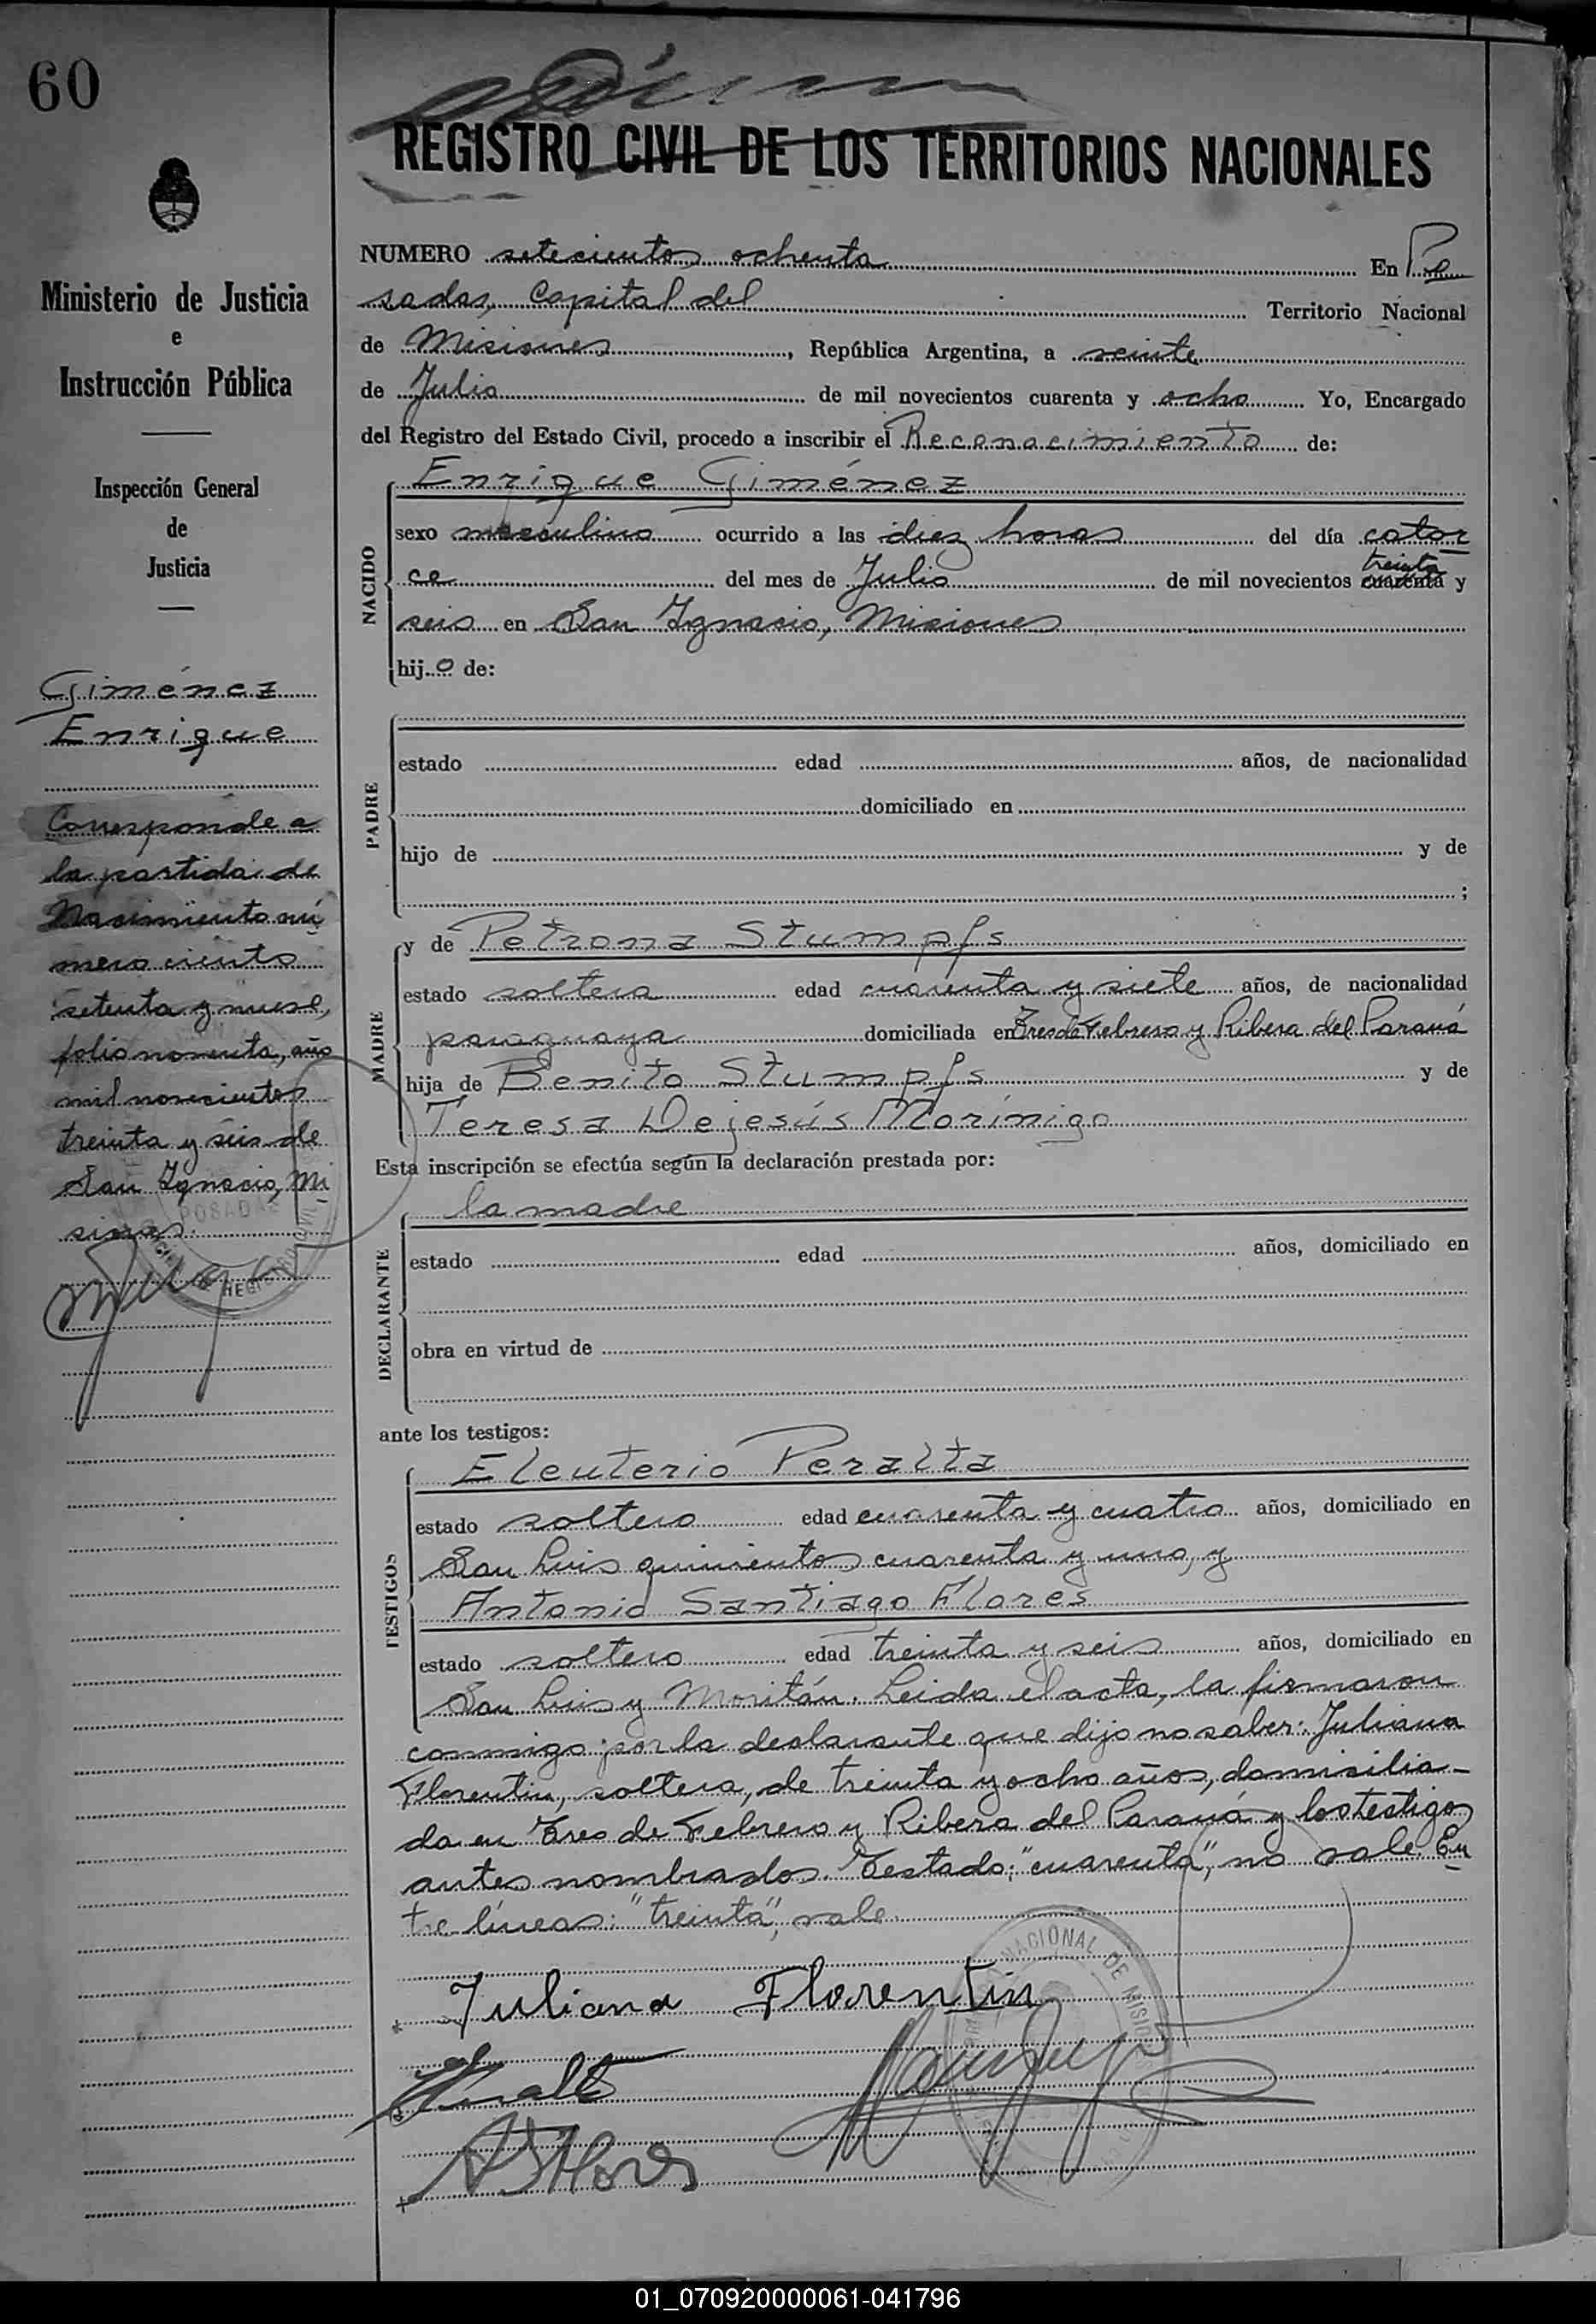 60
REGISTRO CIVIL DE LOS TERRITORIOS NACIONALES
Ministerio de Justicia
e
Instrucción Pública
Inspección General
de
Justicia
Giménez
Enrique
Corresponde a
la partida de
Nacimiento nú
mero ciento
setenta y nueve,
folio noventa, año
mil novecientos
treinta y seis de
San Ignacio, Mi
siones.
POSADAS
NUMERO setecientos ochenta En Po
sadas, Capital del Territorio Nacional
de Misiones, República Argentina, a veinte
de Julio de mil novecientos cuarenta y ocho Yo, Encargado
del Registro del Estado Civil, procedo a inscribir el Reconocimiento de:
Enrique Giménez
NACIDO
sexo masculino ocurrido a las diez horas del día cator
ce del mes de Julio de mil novecientos cuarenta treinta y
seis en San Ignacio, Misiones
hijo de:
PADRE
estado edad años, de nacionalidad
domiciliado en
hijo de y de
;
MADRE
y de Petrona Stumpfs
estado soltera edad cuarenta y siete años, de nacionalidad
paraguaya domiciliada en Tres de Febrero y Ribera del Paraná
hija de Benito Stumpfs y de
Teresa Dejesús Morínigo
Esta inscripción se efectúa según la declaración prestada por:
la madre
DECLARANTE
estado edad años, domiciliado en
obra en virtud de
ante los testigos:
TESTIGOS
Eleuterio Peralta
estado soltero edad cuarenta y cuatro años, domiciliado en
San Luis quinientos cuarenta y uno, y
Antonio Santiago Flores
estado soltero edad treinta y seis años, domiciliado en
San Luis y Moritán. Leida el acta, la firmaron
conmigo por la declarante que dijo no saber: Juliana
Florentin, soltera, de treinta y ocho años, domicilia-
da en Tres de Febrero y Ribera del Paraná y los testigos
antes nombrados. Testado: "cuarenta", no vale. En
tre líneas: "treinta", vale.
Juliana Florentin
NACIONAL DE MISIONES
A S Flores
01_070920000061-041796